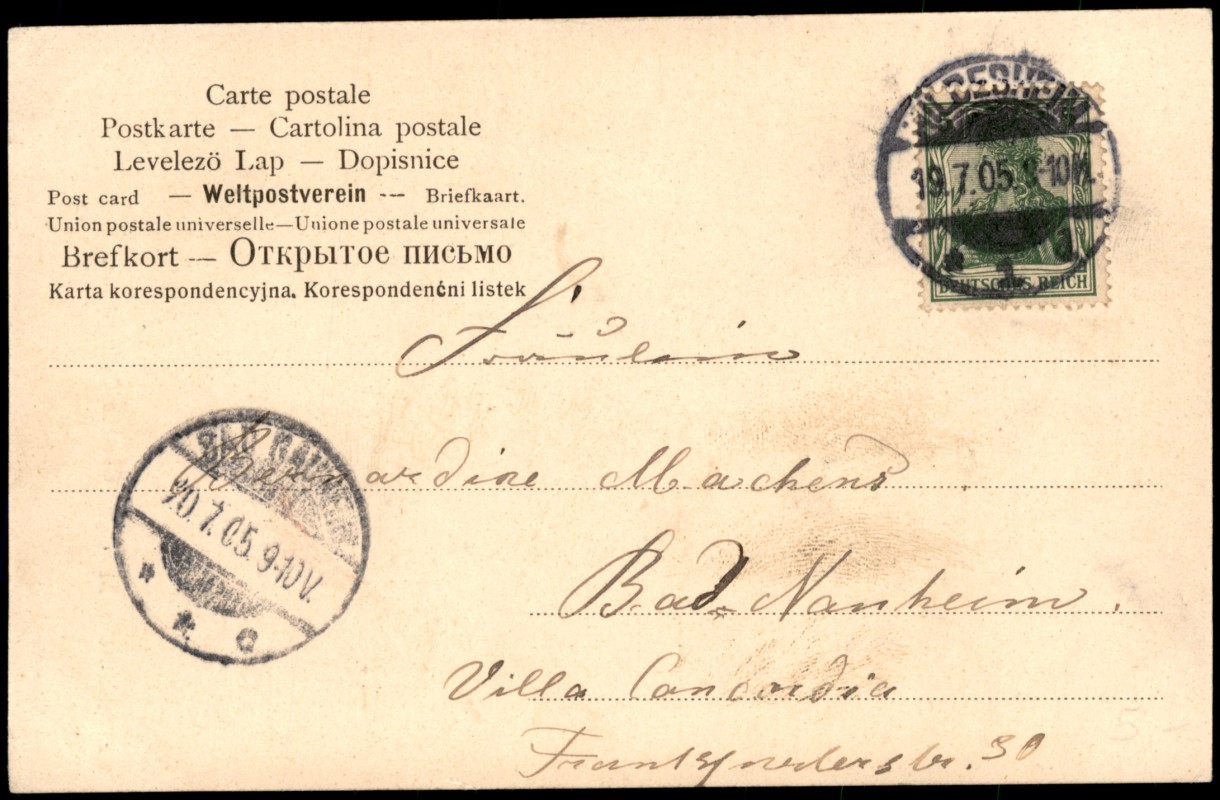 Carte postale
Postkarte — Cartolina postale
Levelező Lap — Dopisnice
Post card — Weltpostverein -- Briefkaart.
Union postale universelle—Unione postale universale
Brefkort — Открытое письмо
Karta korespondencyjna. Korespondenčni listek
HILDESHEIM
19.7.05.9-10V.
* 1 d
DEUTSCHES REICH
Fräulein
Bernardine Machens.
Bad-Nauheim.
Villa Concordia
Frankfurterstr. 30
20.7.05.9-10V.
5-